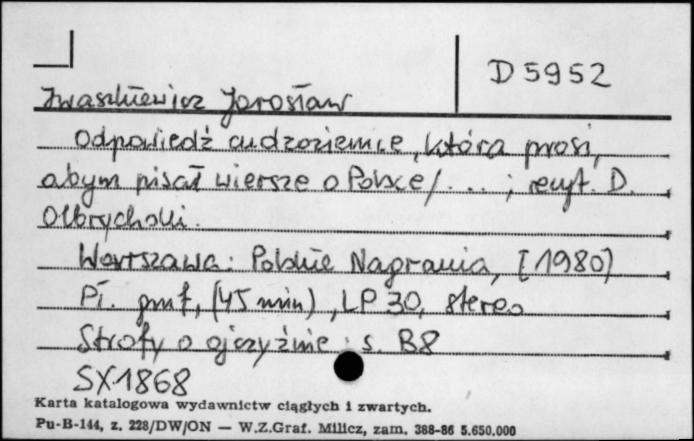 D 5952
Iwaszkiewicz Jarosław
Odpowiedź cudzoziemce, która prosi,
abym pisał wiersze o Polsce / ... ; recyt. D.
Olbrychski.
Warszawa: Polskie Nagrania, [1980]
Pł. gmf, (45 min), LP 30, stereo
Strofy o ojczyźnie : s. B8
SX-1868
Karta katalogowa wydawnictw ciągłych i zwartych.
Pu-B-144, z. 228/DW/ON — W.Z.Graf. Milicz, zam. 388-86 5.650.000